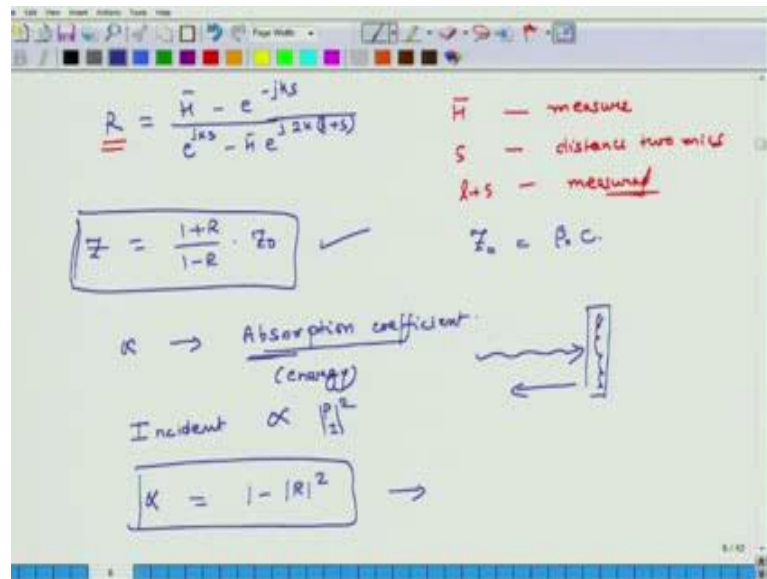 File Edit View Insert Actions Tools Help
Page Width
R = (H̄ - e^{-jks}) / (e^{jks} - H̄ e^{j2k(l+s)})
H̄ — measure
s — distance two mics
l+s — measured
Z = (1+R)/(1-R) · Z₀ ✓
Z₀ = ρ₀ C.
α → Absorption coefficient.
(energy)
Incident ∝ |P₁|²
α = 1 - |R|² →